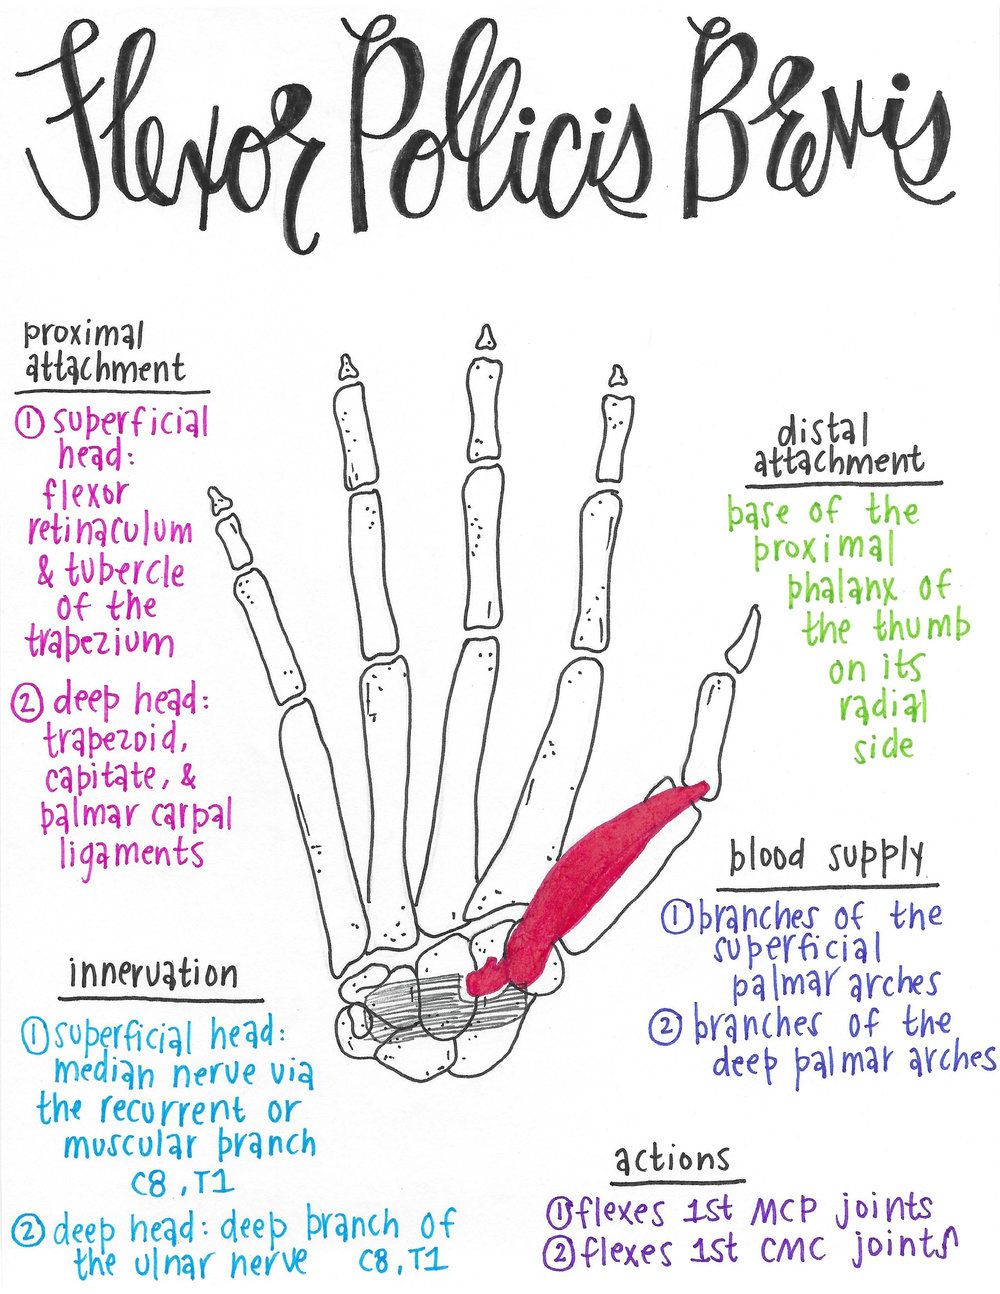 Flexor Pollicis Brevis
proximal
attachment
① superficial
head:
flexor
retinaculum
& tubercle
of the
trapezium
② deep head:
trapezoid,
capitate, &
palmar carpal
ligaments
innervation
① superficial head:
median nerve via
the recurrent or
muscular branch
C8, T1
② deep head: deep branch of
the ulnar nerve C8, T1
distal
attachment
base of the
proximal
phalanx of
the thumb
on its
radial
side
blood supply
① branches of the
superficial
palmar arches
② branches of the
deep palmar arches
actions
① flexes 1st MCP joints
② flexes 1st CMC joints